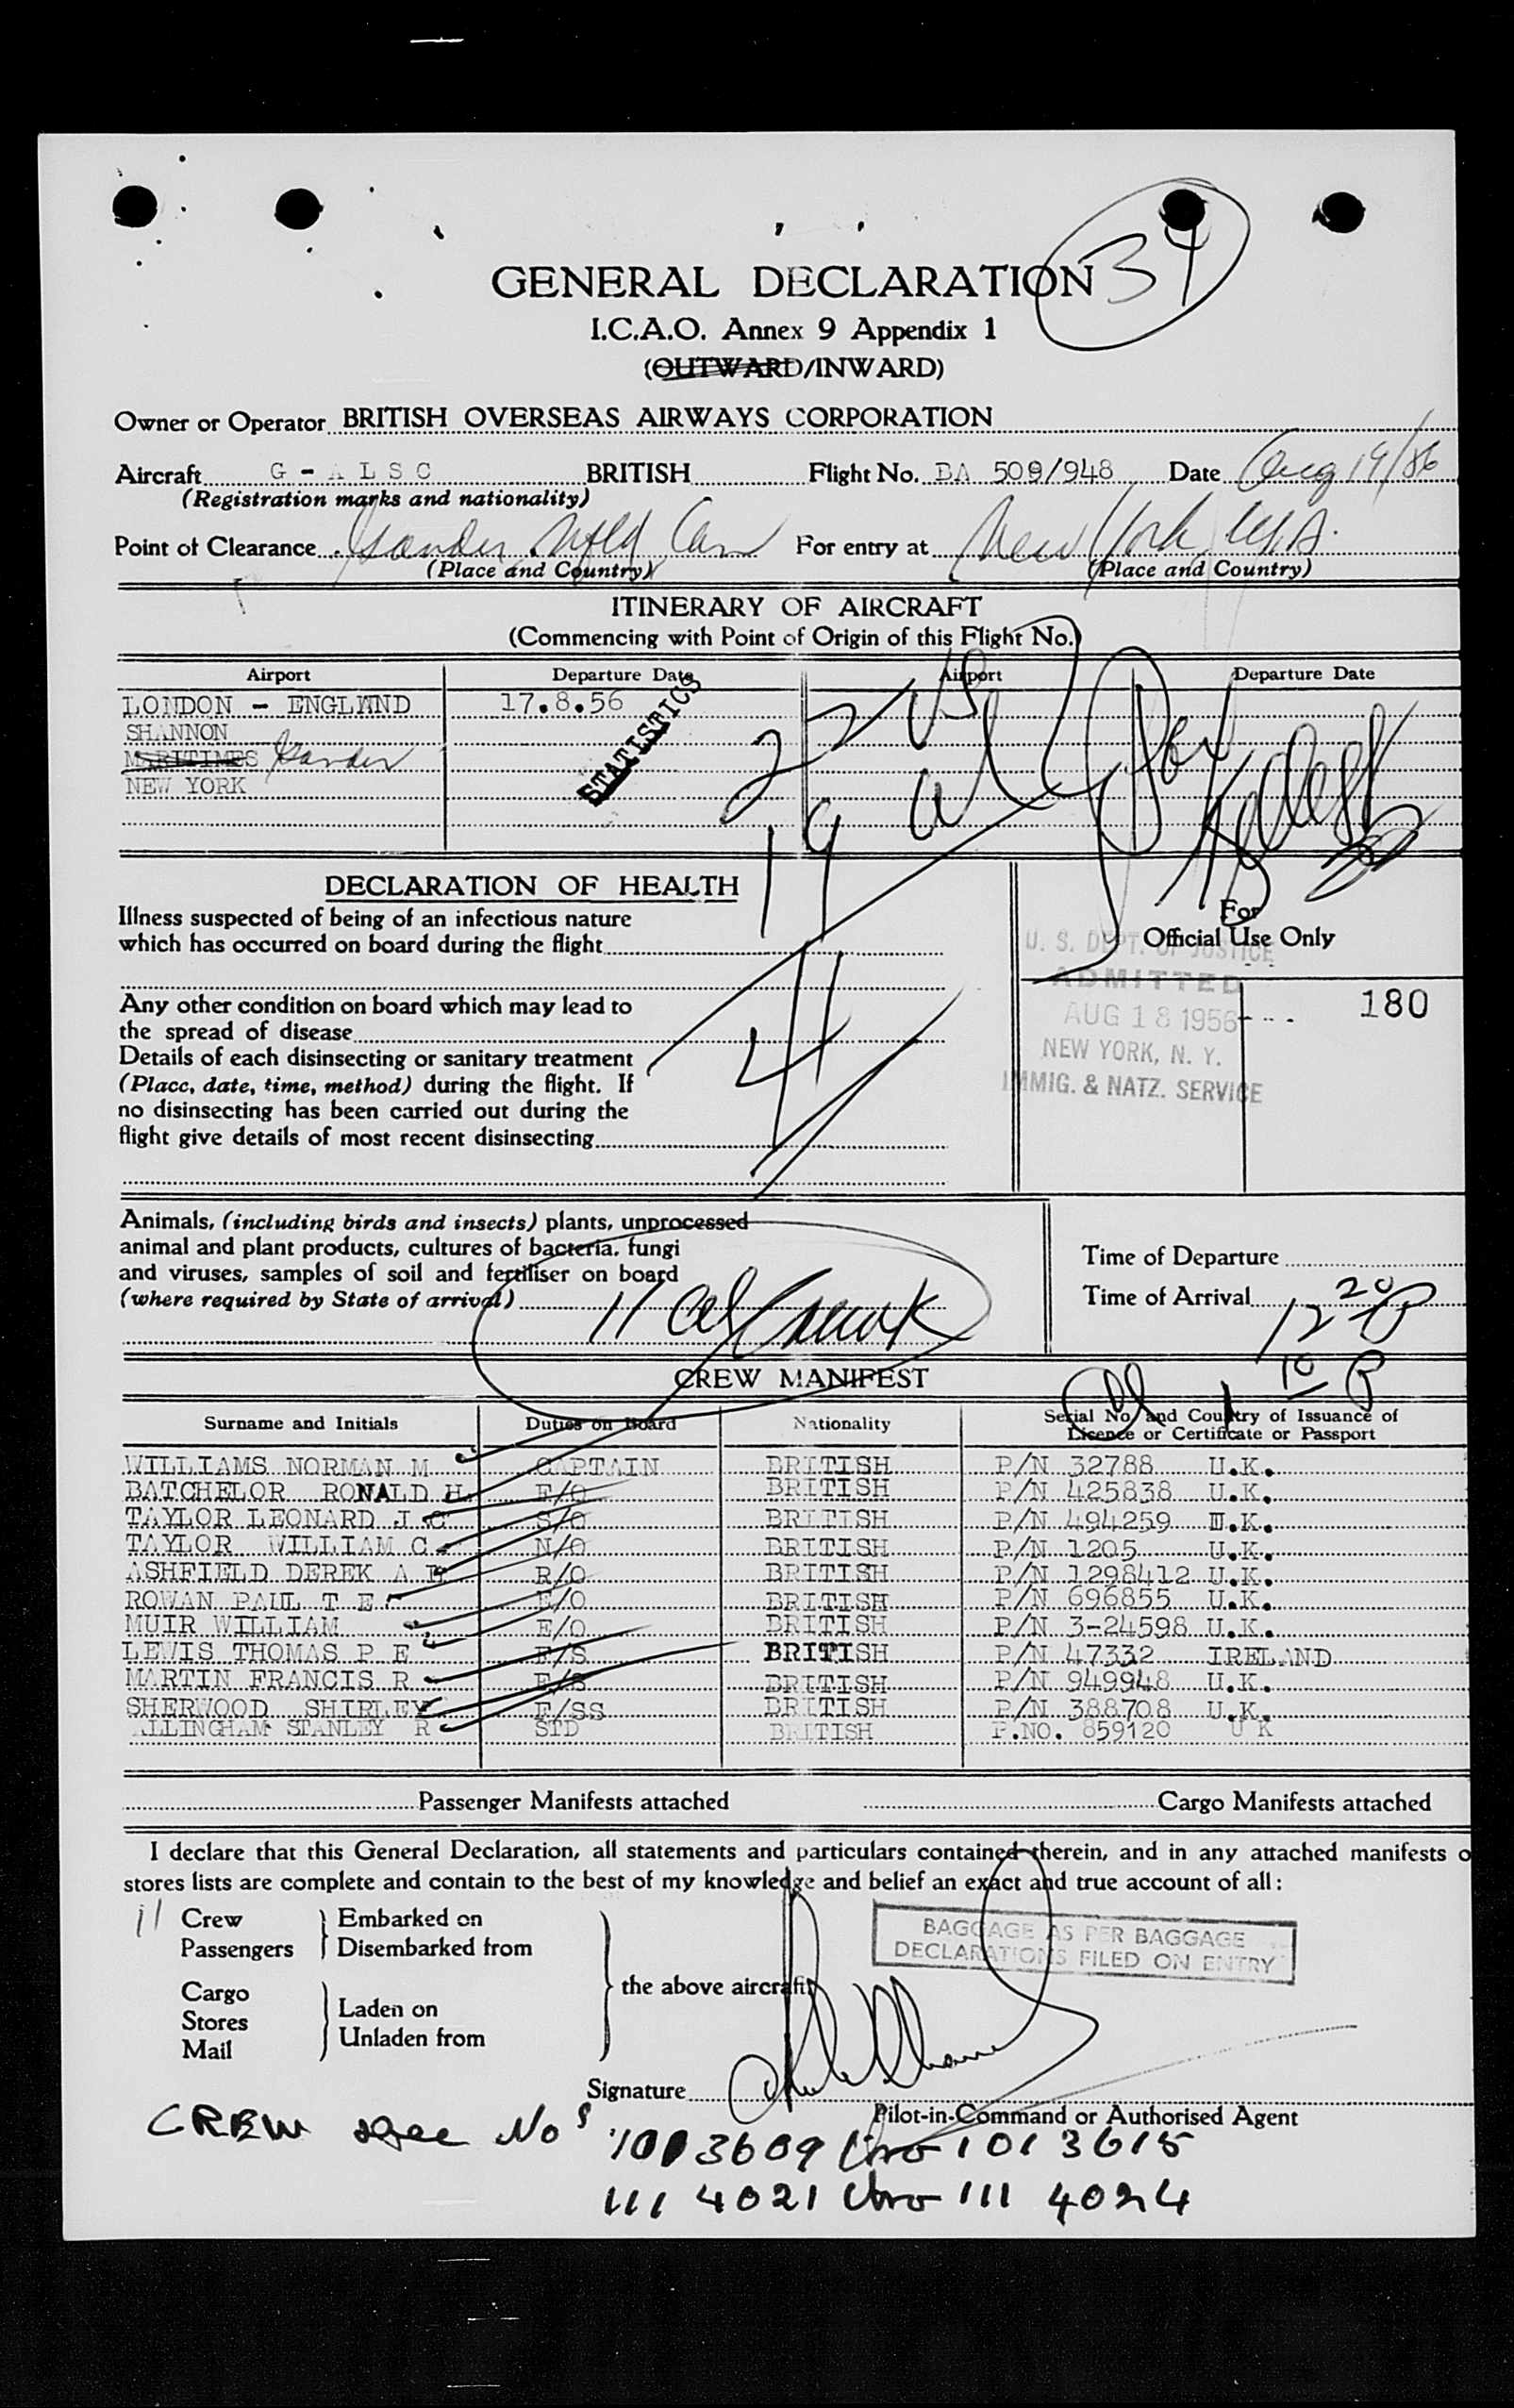 34
GENERAL DECLARATION
I.C.A.O. Annex 9 Appendix 1
(OUTWARD/INWARD)
Owner or Operator BRITISH OVERSEAS AIRWAYS CORPORATION
Aircraft G - A L S C BRITISH Flight No. BA 509/948 Date Aug 19/56
(Registration marks and nationality)
Point of Clearance Gander Nfld Can For entry at New York
(Place and Country) (Place and Country)
ITINERARY OF AIRCRAFT
(Commencing with Point of Origin of this Flight No.)
Airport Departure Date Airport Departure Date
LONDON - ENGLAND 17.8.56
SHANNON
MARITIMES Gander
NEW YORK
STATISTICS
DECLARATION OF HEALTH
Illness suspected of being of an infectious nature
which has occurred on board during the flight
For
Official Use Only
U. S. DEPT. OF JUSTICE
ADMITTED
AUG 18 1956
NEW YORK, N. Y.
IMMIG. & NATZ. SERVICE
180
Any other condition on board which may lead to
the spread of disease
Details of each disinsecting or sanitary treatment
(Place, date, time, method) during the flight. If
no disinsecting has been carried out during the
flight give details of most recent disinsecting
Animals, (including birds and insects) plants, unprocessed
animal and plant products, cultures of bacteria, fungi
and viruses, samples of soil and fertiliser on board
(where required by State of arrival) 11
Time of Departure
Time of Arrival 12 20 P
1 10 P
CREW MANIFEST
Surname and Initials Duties on Board Nationality Serial No. and Country of Issuance of
Licence or Certificate or Passport
WILLIAMS NORMAN M CAPTAIN BRITISH P/N 32788 U.K.
BATCHELOR RONALD H F/O BRITISH P/N 425838 U.K.
TAYLOR LEONARD J C S/O BRITISH P/N 494259 U.K.
TAYLOR WILLIAM C N/O BRITISH P/N 1205 U.K.
ASHFIELD DEREK A H R/O BRITISH P/N 1298412 U.K.
ROWAN PAUL T E E/O BRITISH P/N 696855 U.K.
MUIR WILLIAM E/O BRITISH P/N 3-24598 U.K.
LEWIS THOMAS P E F/S BRITISH P/N 47332 IRELAND
MARTIN FRANCIS R F/S BRITISH P/N 949948 U.K.
SHERWOOD SHIRLEY F/SS BRITISH P/N 388708 U.K.
ALLINGHAM STANLEY R STD BRITISH P.NO. 859120 U K
Passenger Manifests attached Cargo Manifests attached
I declare that this General Declaration, all statements and particulars contained therein, and in any attached manifests o
stores lists are complete and contain to the best of my knowledge and belief an exact and true account of all:
11 Crew
Passengers
Embarked on
Disembarked from
Cargo
Stores
Mail
Laden on
Unladen from
the above aircraft
BAGGAGE AS PER BAGGAGE
DECLARATIONS FILED ON ENTRY
Signature
Pilot-in-Command or Authorised Agent
CREW Dec Nos 1013609 thro 1013615
111 4021 thro 111 4024